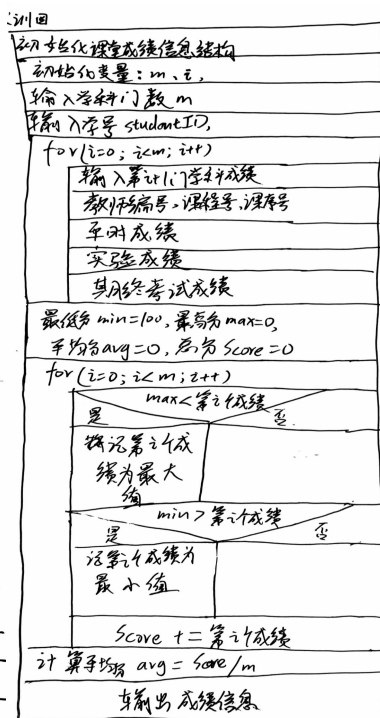 初始化课堂成绩信息结构
初始化变量：m、i，
输入学科门数 m
输入学号 studentID，
for(i=0；i<m；i++)
输入第i+1门学科成绩
教师编号、课程号、课序号
平时成绩
实验成绩
期终考试成绩
最低分min=100，最高分max=0，
平均分avg=0，总分Score=0
for(i=0；i<m；i++)
max<第i个成绩
是 否
标记第i个成
绩为最大
值
min>第i个成绩
是 否
记第i个成绩为
最小值
Score += 第i个成绩
计算平均分 avg = Score/m
输出成绩信息